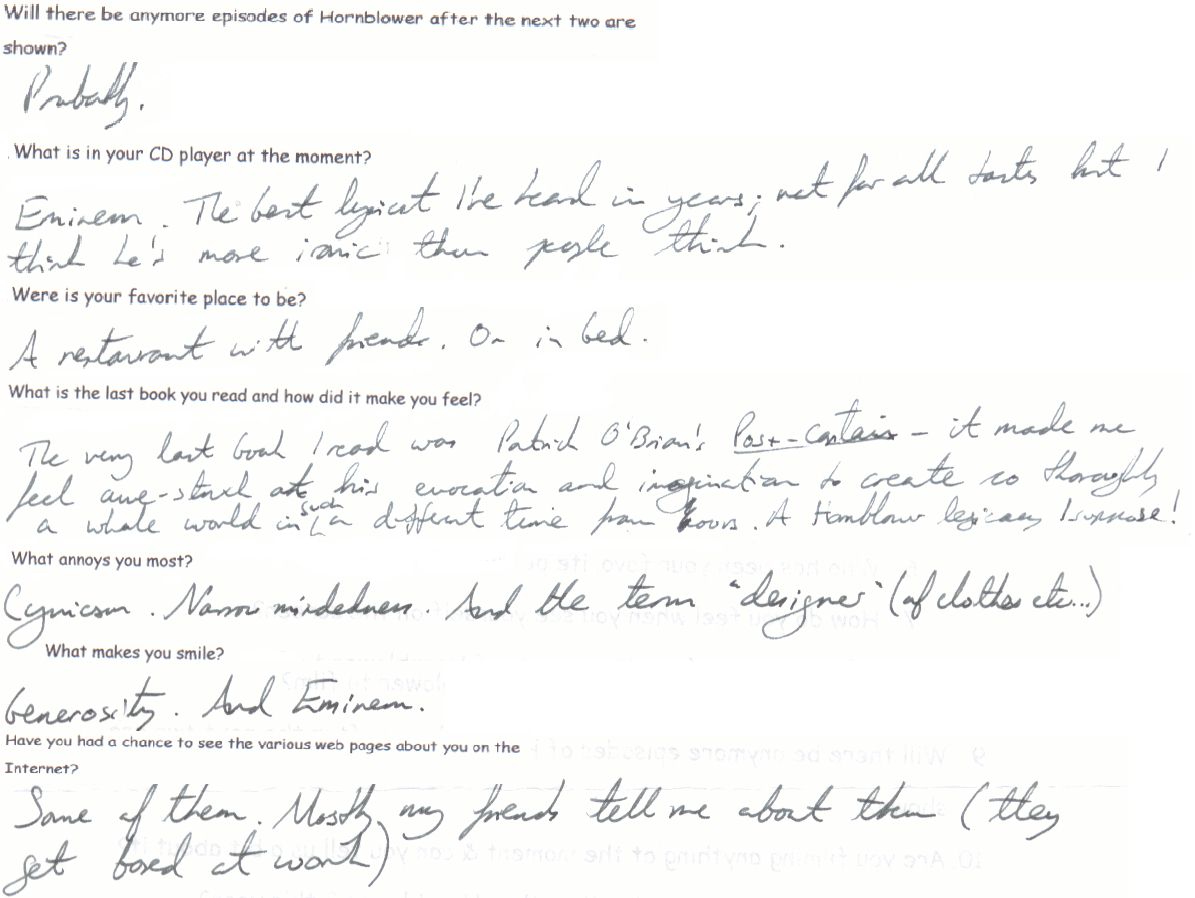 Will there be anymore episodes of Hornblower after the next two are
shown?
Probably.
What is in your CD player at the moment?
Eminem. The best lyricist I've heard in years; not for all tastes but I
think he's more ironic than people think.
Were is your favorite place to be?
A restaurant with friends. Or in bed.
What is the last book you read and how did it make you feel?
The very last book I read was Patrick O'Brian's Post-Captain - it made me
feel awe-struck at his evocation and imagination to create so thoroughly
a whole world in such a different time from ours. A Hornblower legacy I suppose!
What annoys you most?
Cynicism. Narrow mindedness. And the term "designer" (of clothes etc...)
What makes you smile?
Generosity. And Eminem.
Have you had a chance to see the various web pages about you on the
Internet?
Some of them. Mostly my friends tell me about them (they
get bored at work)